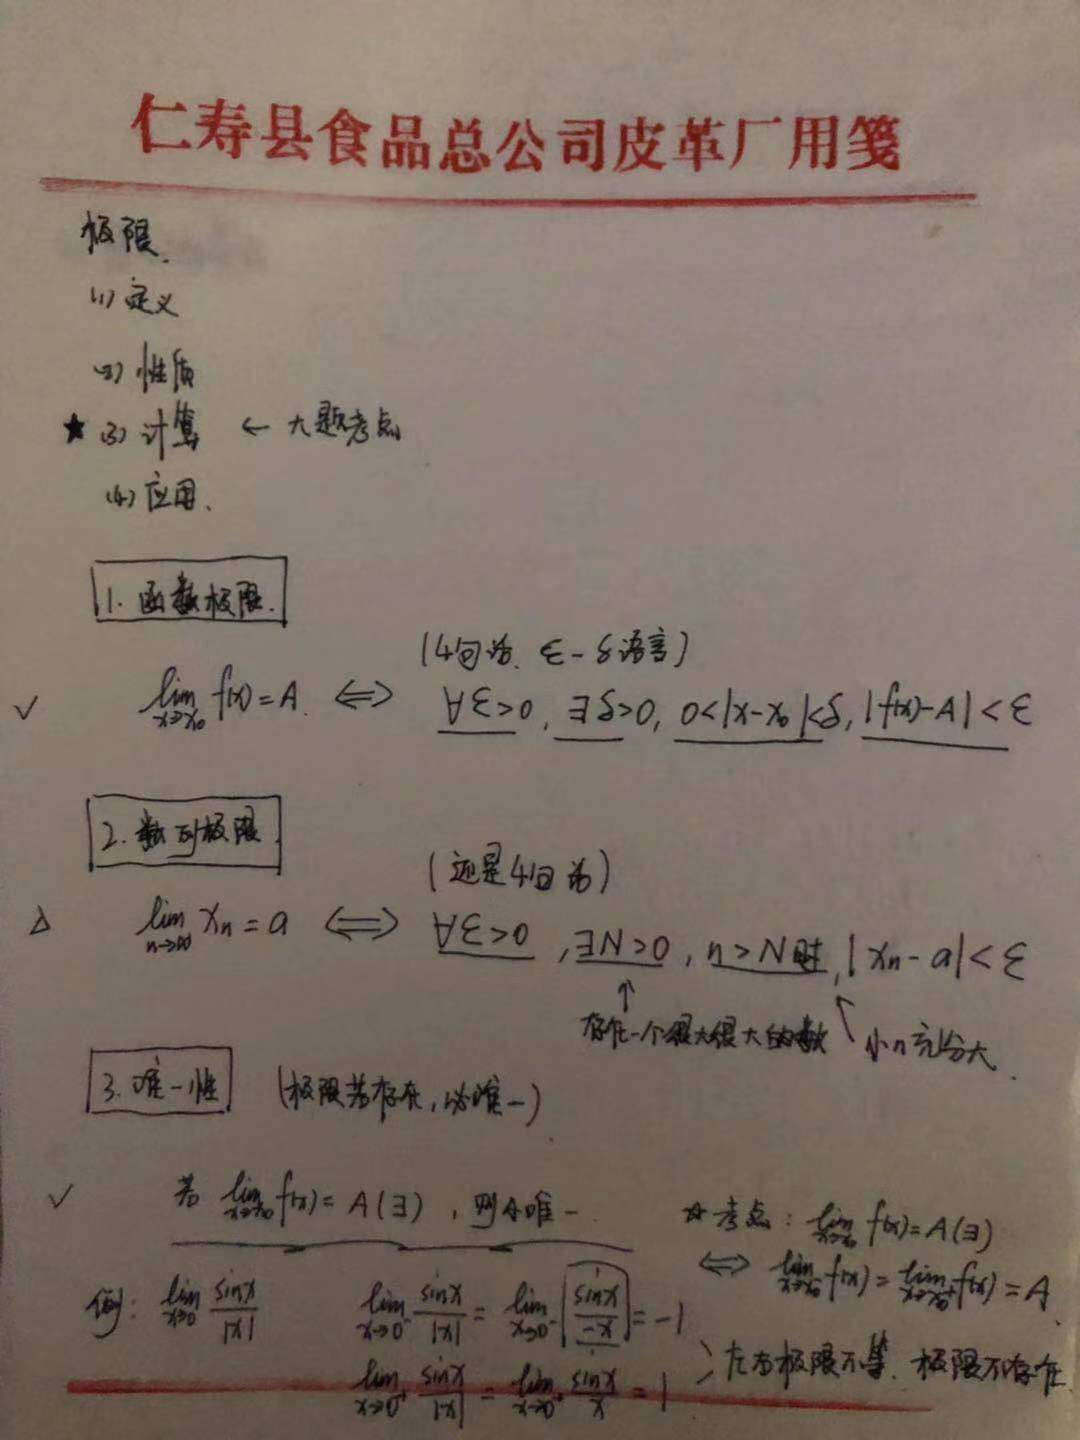 仁寿县食品总公司皮革厂用笺
极限.
(1) 定义
(2) 性质
★ (3) 计算 ← 大题考点
(4) 应用.
1. 函数极限.
(4句话. ε-δ语言)
✓ lim x→x₀ f(x)=A. ⟺ ∀ε>0, ∃δ>0, 0<|x-x₀|<δ, |f(x)-A|<ε
2. 数列极限.
(还是4句话)
△ lim n→∞ xₙ=a ⟺ ∀ε>0, ∃N>0, n>N时, |xₙ-a|<ε
↑ 存在一个很大很大的数 ↖ 小n充分大.
3. 唯一性 (极限若存在, 必唯一)
✓ 若 lim x→x₀ f(x)=A(∃), 则A唯一.
☆考点: lim x→x₀ f(x)=A(∃)
⟺ lim x→x₀⁻ f(x)=lim x→x₀⁺ f(x)=A.
例: lim x→0 sinx/|x| lim x→0⁻ sinx/|x| = lim x→0⁻ sinx/-x = -1
lim x→0⁺ sinx/|x| = lim x→0⁺ sinx/x = 1
> 左右极限不等. 极限不存在